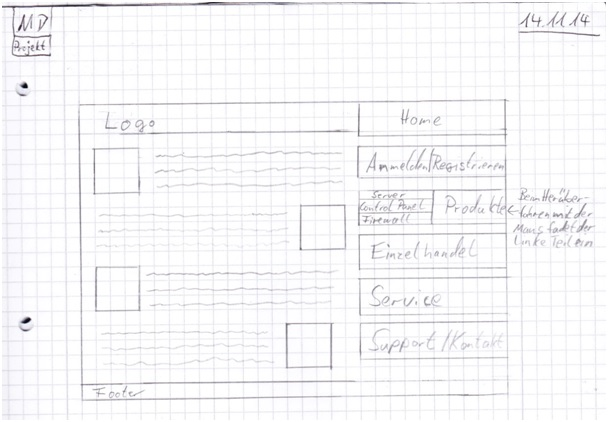 MD
Projekt
14.11.14
Logo
Home
Anmelden/Registrieren
Server
Control Panel
Firewall
Produkte
Beim Herüber-
fahren mit der
Maus fadet der
linke Teil ein
Einzelhandel
Service
Support/Kontakt
Footer